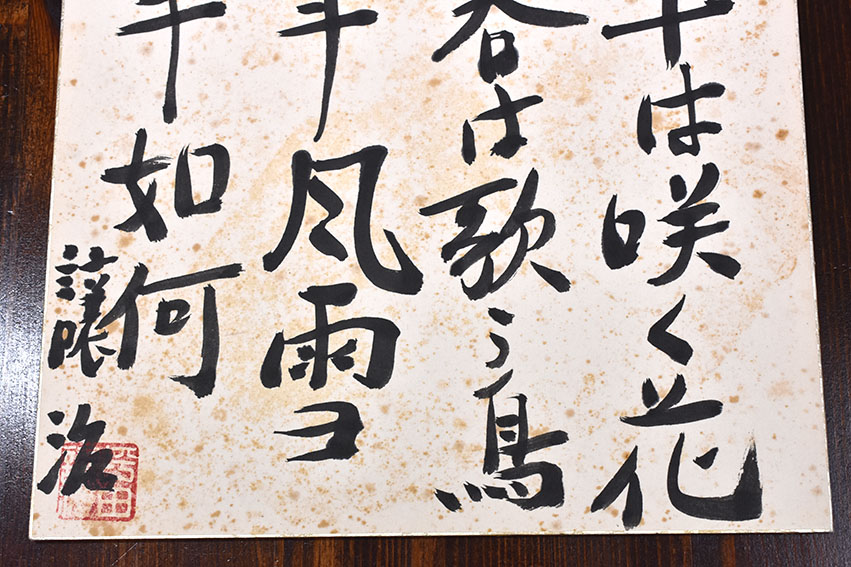 は咲く花
春は歌う鳥
風雪
如何
譲治